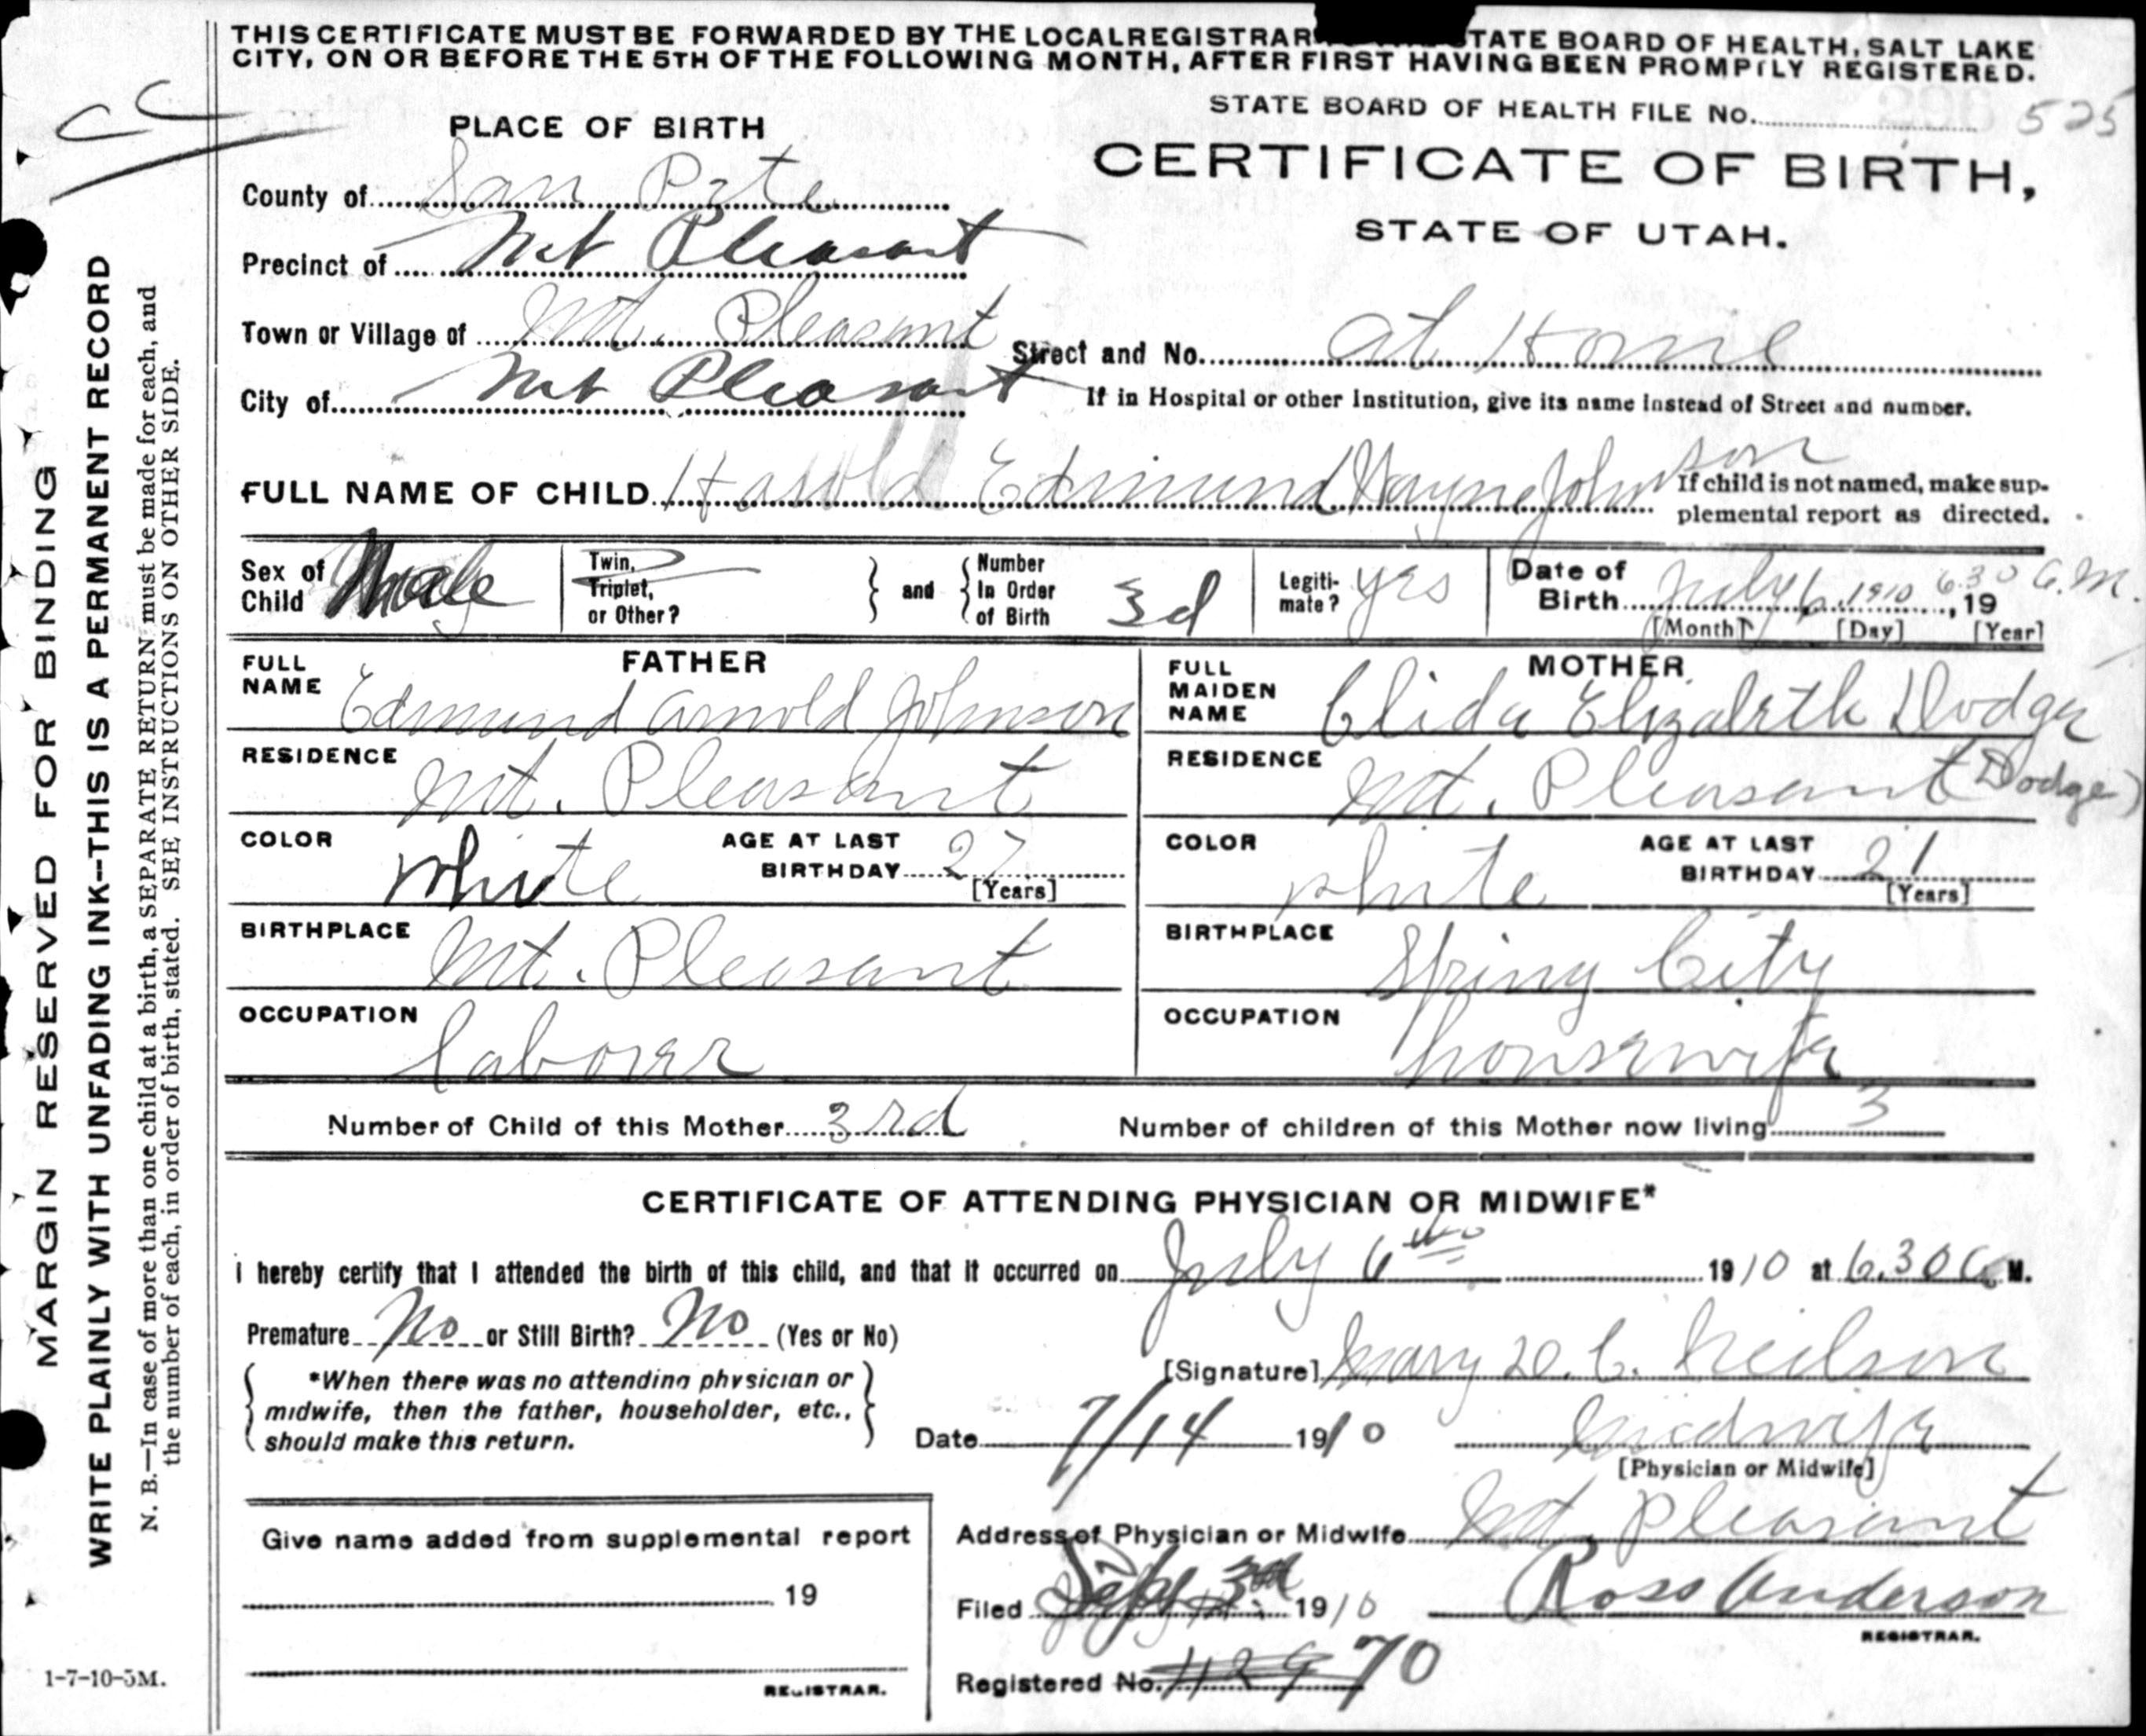 THIS CERTIFICATE MUST BE FORWARDED BY THE LOCAL REGISTRAR STATE BOARD OF HEALTH, SALT LAKE
CITY, ON OR BEFORE THE 5TH OF THE FOLLOWING MONTH, AFTER FIRST HAVING BEEN PROMPTLY REGISTERED.
CC
STATE BOARD OF HEALTH FILE No. 525
PLACE OF BIRTH
CERTIFICATE OF BIRTH,
STATE OF UTAH.
County of San Pete
Precinct of Mt Pleasant
Town or Village of Mt. Pleasant
Street and No. at Home
City of Mt Pleasant
If in Hospital or other Institution, give its name instead of Street and number.
FULL NAME OF CHILD Harold Edmund Wayne Johnson
If child is not named, make sup-
plemental report as directed.
Sex of Child Male
Twin, Triplet, or Other?
and
Number In Order of Birth 3d
Legiti-mate? yes
Date of Birth July 6, 1910 6.30 a.m. , 19
[Month] [Day] [Year]
FATHER
FULL NAME Edmund Arnold Johnson
RESIDENCE Mt. Pleasant
COLOR white
AGE AT LAST BIRTHDAY 27
[Years]
BIRTHPLACE Mt. Pleasant
OCCUPATION laborer
MOTHER
FULL MAIDEN NAME Clida Elizabeth Dodge
(Dodge)
RESIDENCE Mt. Pleasant
COLOR white
AGE AT LAST BIRTHDAY 21
[Years]
BIRTHPLACE Spring City
OCCUPATION housewife
Number of Child of this Mother 3rd
Number of children of this Mother now living 3
CERTIFICATE OF ATTENDING PHYSICIAN OR MIDWIFE*
I hereby certify that I attended the birth of this child, and that it occurred on July 6th 1910 at 6.30 a. M.
Premature No or Still Birth? No (Yes or No)
[Signature] Mary D. C. Neilson
*When there was no attending physician or
midwife, then the father, householder, etc.,
should make this return.
Date 7/14 1910
Midwife
[Physician or Midwife]
Address of Physician or Midwife Mt. Pleasant
Give name added from supplemental report
19
REGISTRAR.
Filed Sept 3rd 1910 Ross Anderson
REGISTRAR.
Registered No. 429 70
MARGIN RESERVED FOR BINDING
WRITE PLAINLY WITH UNFADING INK--THIS IS A PERMANENT RECORD
N. B.—In case of more than one child at a birth, a SEPARATE RETURN must be made for each, and
the number of each, in order of birth, stated. SEE INSTRUCTIONS ON OTHER SIDE.
1-7-10-5M.